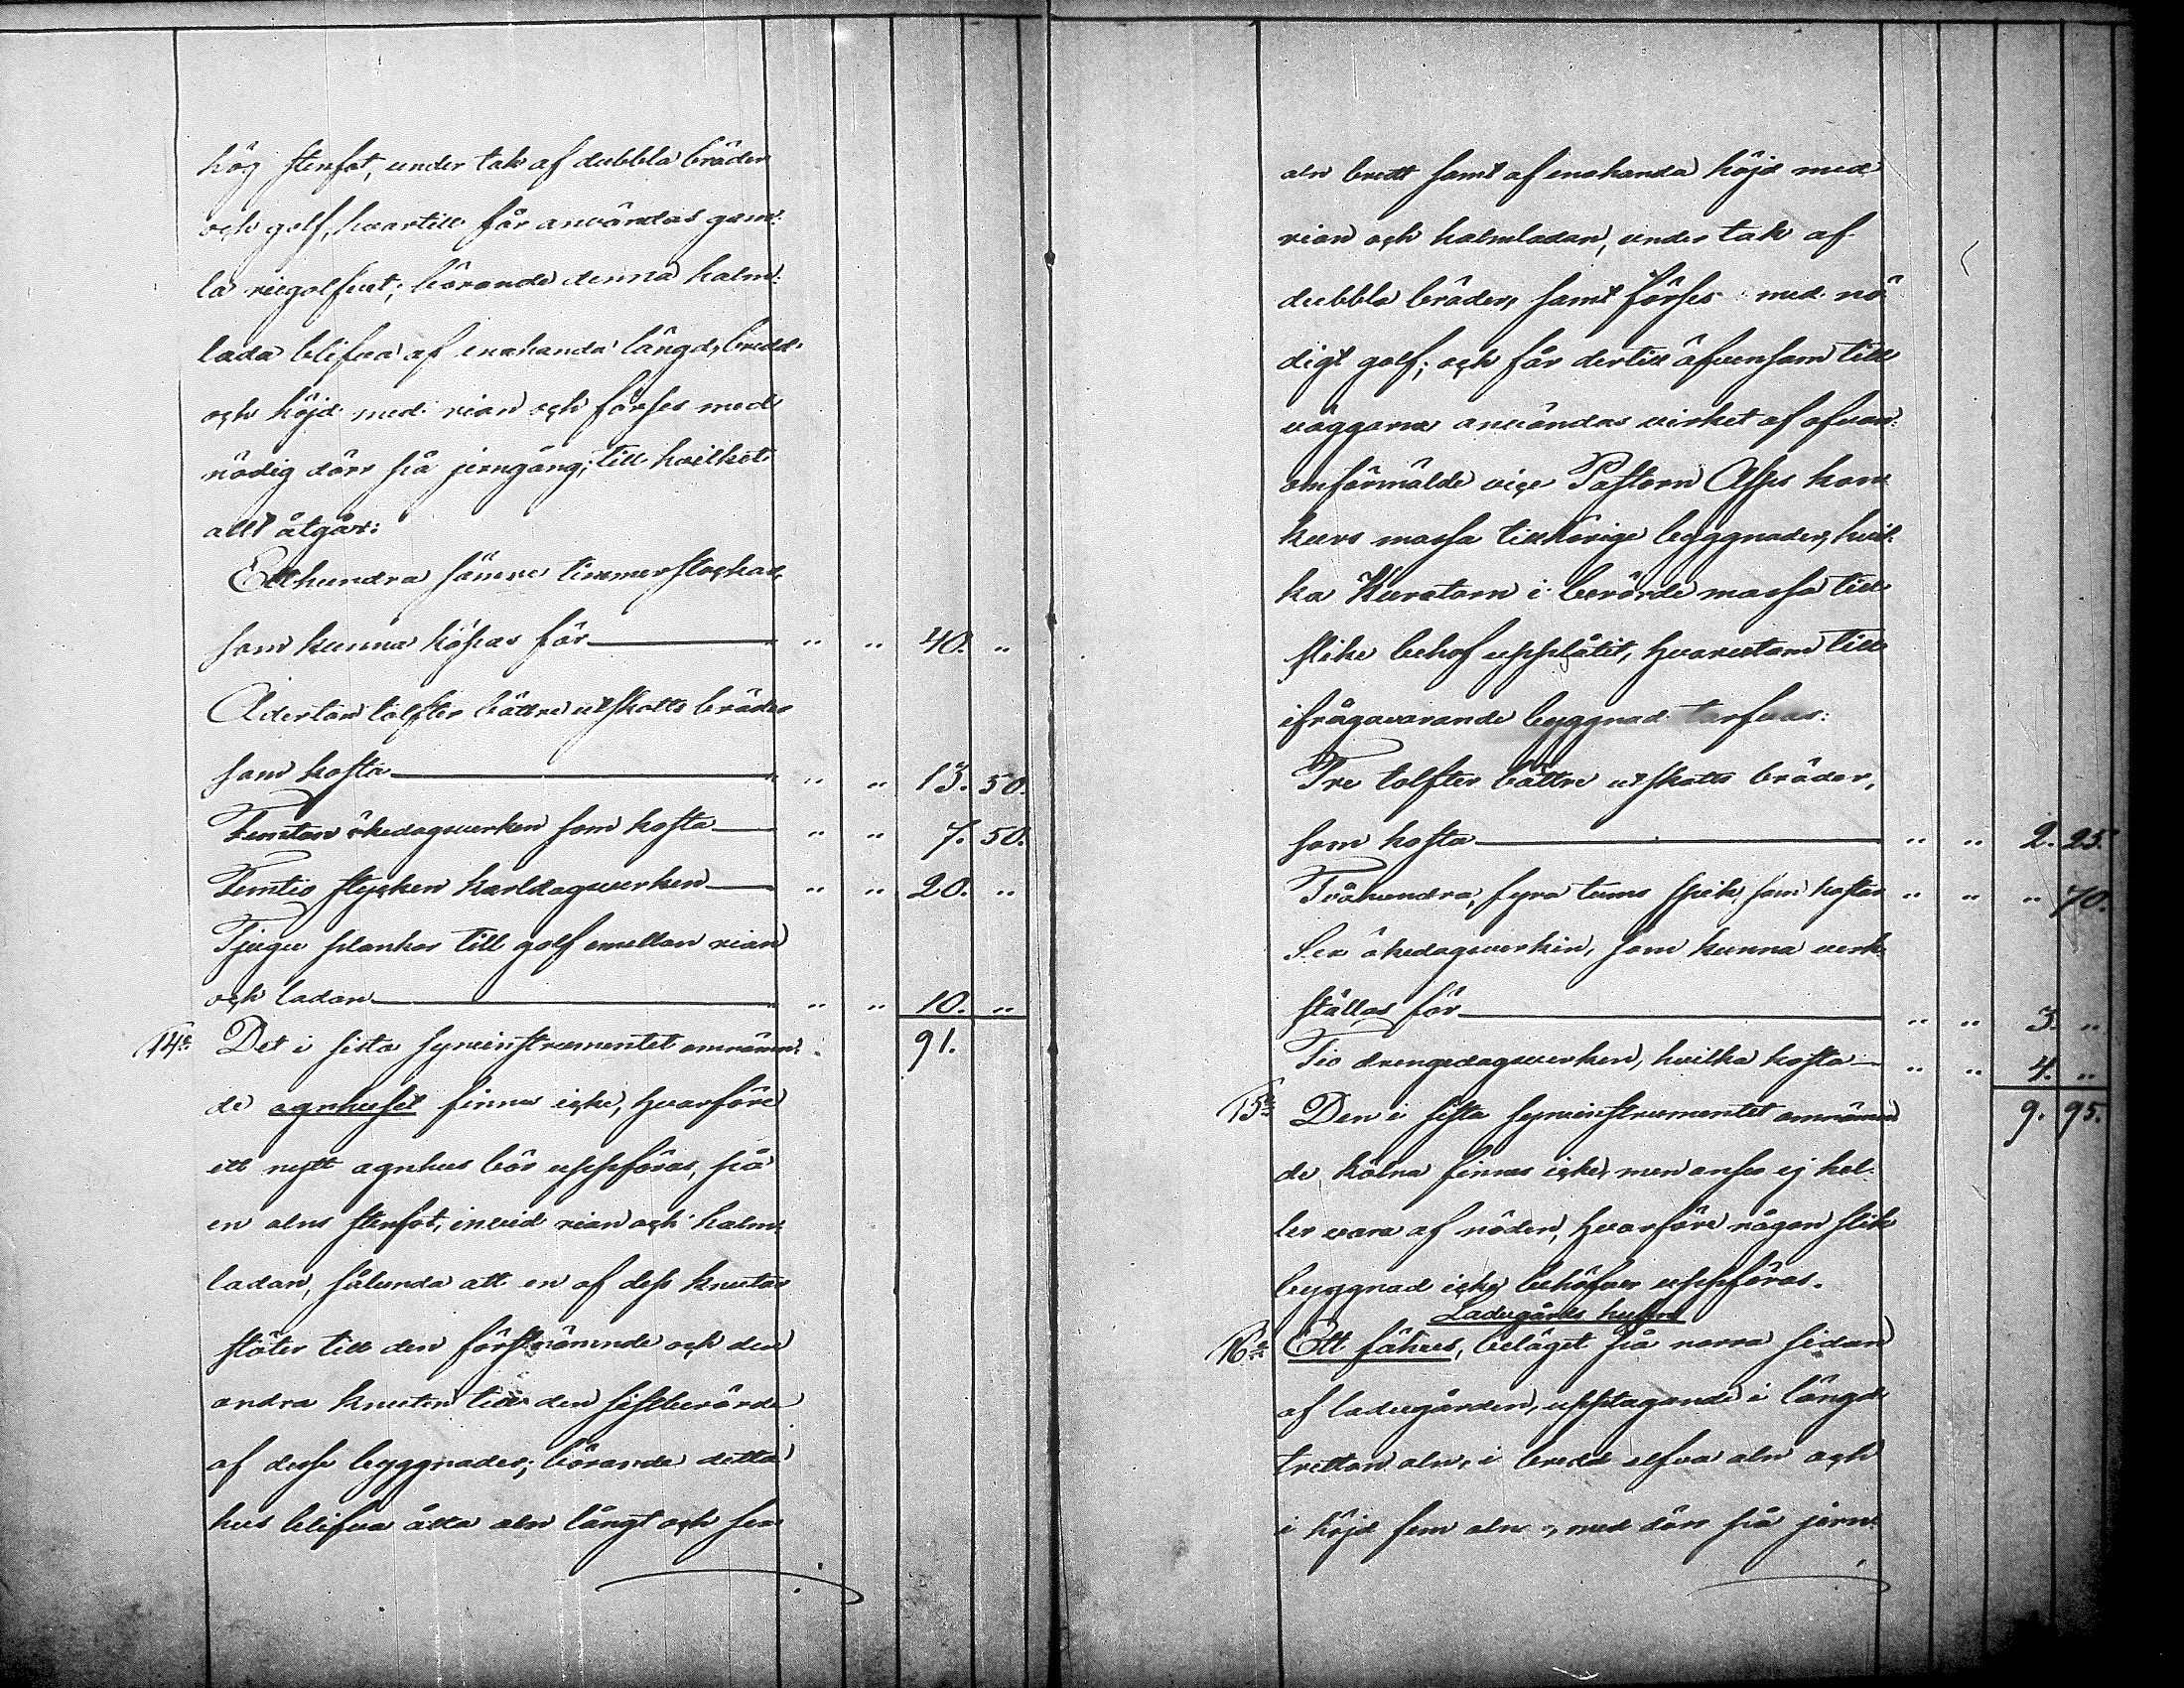 hög stenfot, under tak af dubbla bräder
och golf, hvartill får användas gam-
la riegolfvet; börande denna halm-
lada blifva af enahanda längd, bredd
och höjd med rian och förses med
nödig dörr på jerngång; till hvilket
allt åtgår:
Etthundra sämre timmerstockar,
som kunna köpas för — " " 40. "
Aderton tolfter bättre utskotts bräder
som kosta — " " 13. 50.
Femton ökedagsverken som kosta — " " 7. 50.
Femtio stycken karldagsverken — " " 20. "
Tjugu plankor till golf emellan rian
och ladan — " " 10. "
14:e Det i sista syneinstrumentet omnämn- 91.
de agnhuset finnes icke, hvarföre
ett nytt agnhus bör uppföras, på
en alns stenfot, invid rian och halm-
ladan, sålunda att en af dess knutar
stöter till den förstnämnde och den
andra knuten till den sistberörde
af desse byggnader; börande detta
hus blifva åtta aln långt och sex
aln bredt samt af enahanda höjd med
rian och halmladan, under tak af
dubbla bräder, samt förses med nö-
digt golf; och får dertill äfvensom till
väggarne användas virket af ofvan-
omförmälde vice Pastorn Asps kon-
kurs massa tillhörige byggnader, hvil-
ka Kuratorn i berörde massa till
slike behof upplåtit, hvarutom till
ifrågavarande byggnad tarfvas:
Tre tolfter bättre utskotts bräder,
som kosta — " " 2. 25.
Tvåhundra, fyra tums spik, som kostar " " " 70.
Sex ökedagsverken, som kunna verk-
ställas för — " " 3. "
Tio drengedagsverken, hvilka kosta — " " 4. "
15:e Den i sista syneinstrumentet omnämn- 9. 95.
de kölna finnes icke, men anses ej hel-
ler vara af nöden, hvarföre någon slik
byggnad icke behöfver uppföras.
Ladugårds husen
16:e Ett fähus, beläget på norra sidan
af ladugården, upptagande i längd
tretton aln, i bredd elfva aln och
i höjd fem aln, med dörr på jern-